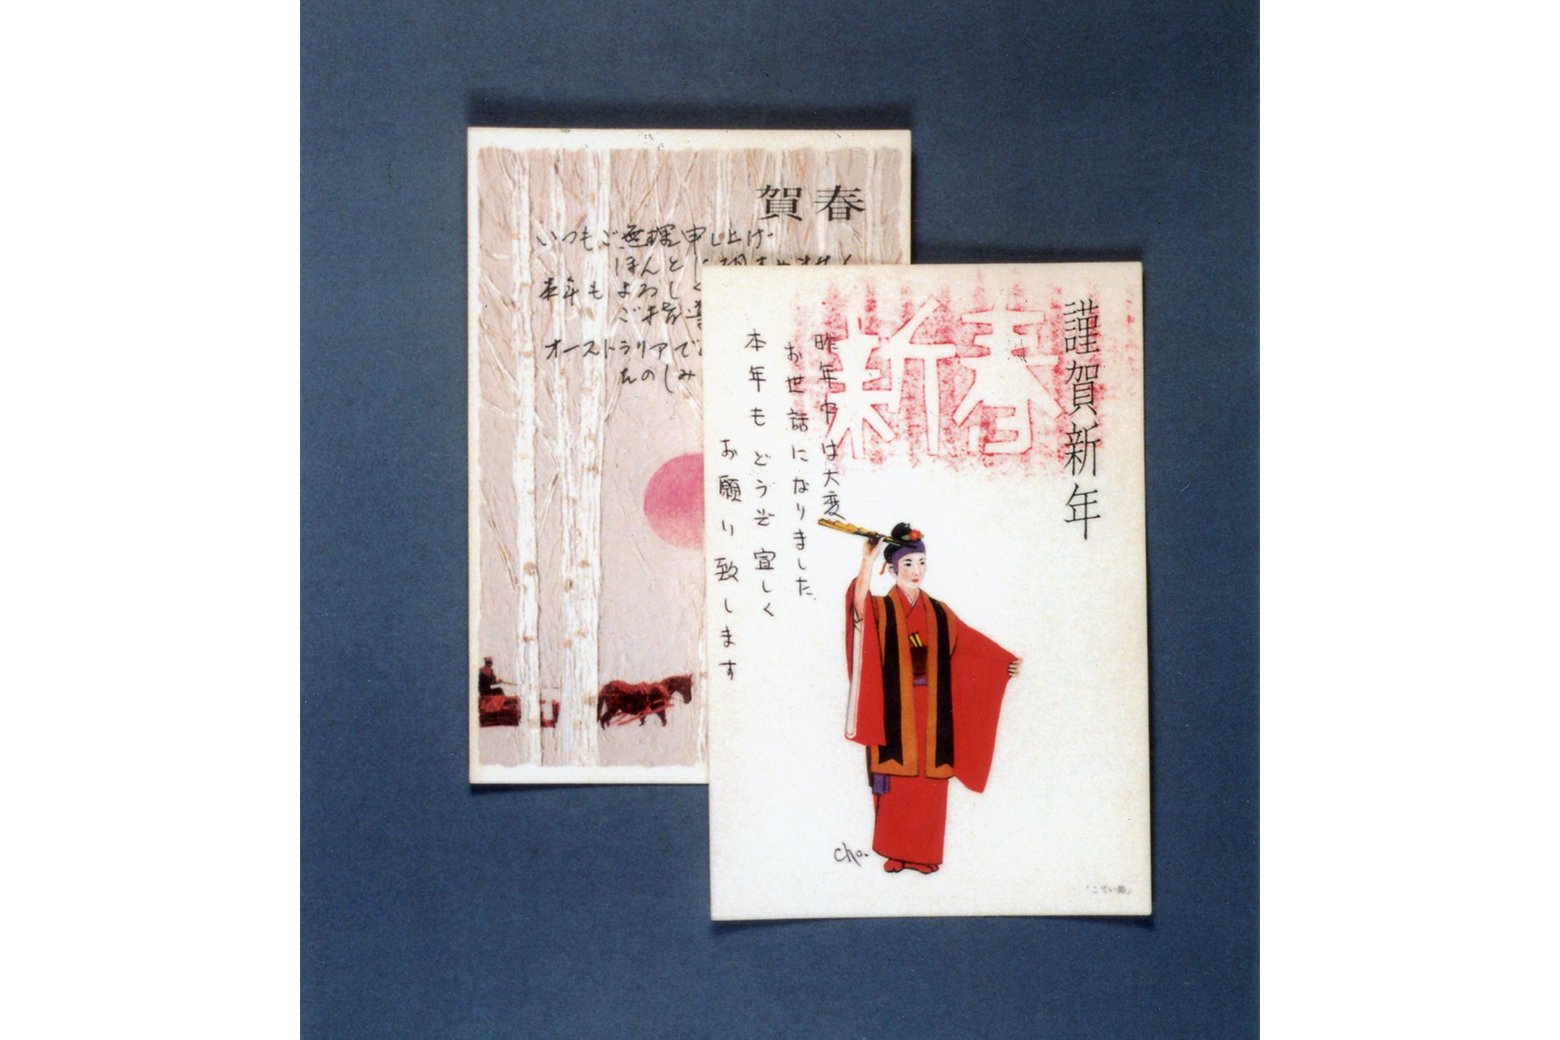 賀春
いつもご無理申し上げ
ほんとに
本年もよろしく
ご指導
オーストラリアで
たのしみ
謹賀新年
新春
昨年中は大変
お世話になりました。
本年もどうぞ宜しく
お願い致します
cho.